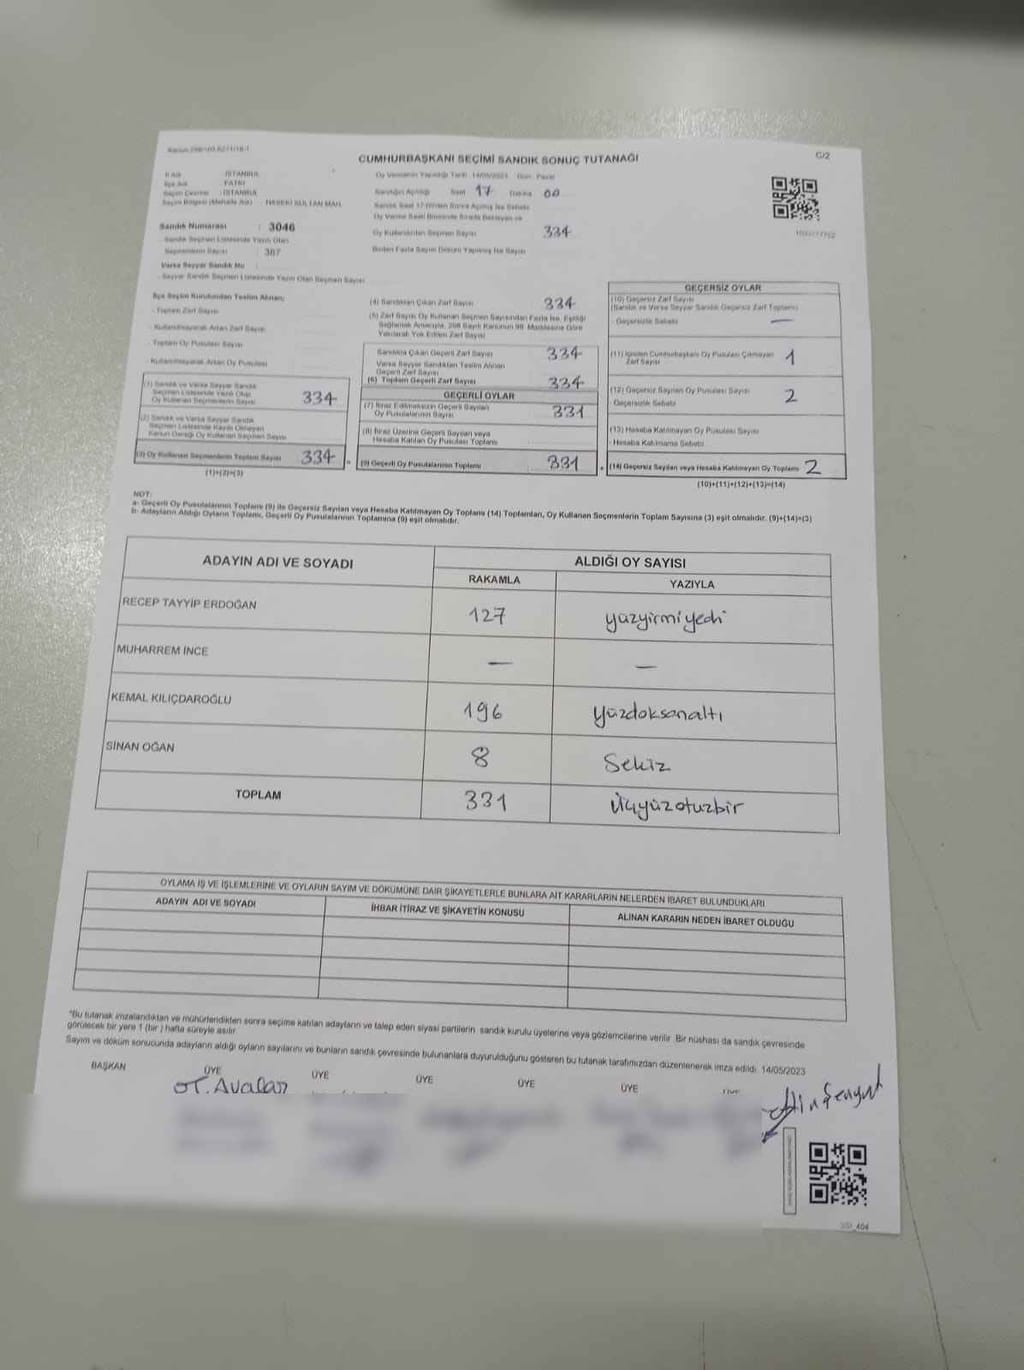 CUMHURBAŞKANI SEÇİMİ SANDIK SONUÇ TUTANAĞI
G/2
İl Adı : İSTANBUL
İlçe Adı : FATİH
Seçim Çevresi : İSTANBUL
Sandık Numarası : 3046
Sandık Seçmen Listesinde Yazılı Olan
Seçmenlerin Sayısı : 387
Varsa Seyyar Sandık No :
Seyyar Sandık Seçmen Listesinde Yazılı Olan Seçmen Sayısı
Saat 17 Dakika 00
Oy Kullanılan Seçmen Sayısı 334
İlçe Seçim Kurulundan Teslim Alınan;
- Toplam Zarf Sayısı
- Kullanılmayarak Artan Zarf Sayısı
- Toplam Oy Pusulası Sayısı
- Kullanılmayarak Artan Oy Pusulası
(1) Sandık ve Varsa Seyyar Sandık
Seçmen Listesinde Yazılı Olup
Oy Kullanan Seçmenlerin Sayısı 334
(2) Sandık ve Varsa Seyyar Sandık
Seçmen Listesinde Kayıtlı Olmayan
Kanun Gereği Oy Kullanan Seçmen Sayısı
(3) Oy Kullanan Seçmenlerin Toplam Sayısı 334
(1)+(2)=(3)
(4) Sandıktan Çıkan Zarf Sayısı 334
(5) Zarf Sayısı Oy Kullanan Seçmen Sayısından Fazla İse, Eşitliği
Sağlamak Amacıyla, 298 Sayılı Kanunun 98. Maddesine Göre
Yakılarak Yok Edilen Zarf Sayısı
Sandıkta Çıkan Geçerli Zarf Sayısı 334
Varsa Seyyar Sandıktan Teslim Alınan
Geçerli Zarf Sayısı
(6) Toplam Geçerli Zarf Sayısı 334
GEÇERLİ OYLAR
(7) İtiraz Edilmeksizin Geçerli Sayılan
Oy Pusulalarının Sayısı 331
(8) İtiraz Üzerine Geçerli Sayılan veya
Hesaba Katılan Oy Pusulası Toplamı
(9) Geçerli Oy Pusulalarının Toplamı 331
GEÇERSİZ OYLAR
(10) Geçersiz Zarf Sayısı
(Sandık ve Varsa Seyyar Sandık Geçersiz Zarf Toplamı)
- Geçersizlik Sebebi —
(11) İçinden Cumhurbaşkanı Oy Pusulası Çıkmayan
Zarf Sayısı 1
(12) Geçersiz Sayılan Oy Pusulası Sayısı 2
- Geçersizlik Sebebi
(13) Hesaba Katılmayan Oy Pusulası Sayısı
- Hesaba Katılmama Sebebi
(14) Geçersiz Sayılan veya Hesaba Katılmayan Oy Toplamı 2
(10)+(11)+(12)+(13)=(14)
NOT:
a- Geçerli Oy Pusulalarının Toplamı (9) ile Geçersiz Sayılan veya Hesaba Katılmayan Oy Toplamı (14) Toplamları, Oy Kullanan Seçmenlerin Toplam Sayısına (3) eşit olmalıdır. (9)+(14)=(3)
b- Adayların Aldığı Oyların Toplamı, Geçerli Oy Pusulalarının Toplamına (9) eşit olmalıdır.
ADAYIN ADI VE SOYADI ALDIĞI OY SAYISI
RAKAMLA YAZIYLA
RECEP TAYYİP ERDOĞAN 127 yüzyirmiyedi
MUHARREM İNCE — —
KEMAL KILIÇDAROĞLU 196 yüzdoksanaltı
SİNAN OĞAN 8 Sekiz
TOPLAM 331 üçyüzotuzbir
OYLAMA İŞ VE İŞLEMLERİNE VE OYLARIN SAYIM VE DÖKÜMÜNE DAİR ŞİKAYETLERLE BUNLARA AİT KARARLARIN NELERDEN İBARET BULUNDUKLARI
ADAYIN ADI VE SOYADI İHBAR İTİRAZ VE ŞİKAYETİN KONUSU ALINAN KARARIN NEDEN İBARET OLDUĞU
*Bu tutanak imzalandıktan ve mühürlendikten sonra seçime katılan adayların ve talep eden siyasi partilerin sandık kurulu üyelerine veya gözlemcilerine verilir. Bir nüshası da sandık çevresinde
görülecek bir yere 1 (bir ) hafta süreyle asılır.
Sayım ve döküm sonucunda adayların aldığı oyların sayılarını ve bunların sandık çevresinde bulunanlara duyurulduğunu gösteren bu tutanak tarafımızdan düzenlenerek imza edildi. 14/05/2023
BAŞKAN ÜYE ÜYE ÜYE ÜYE ÜYE